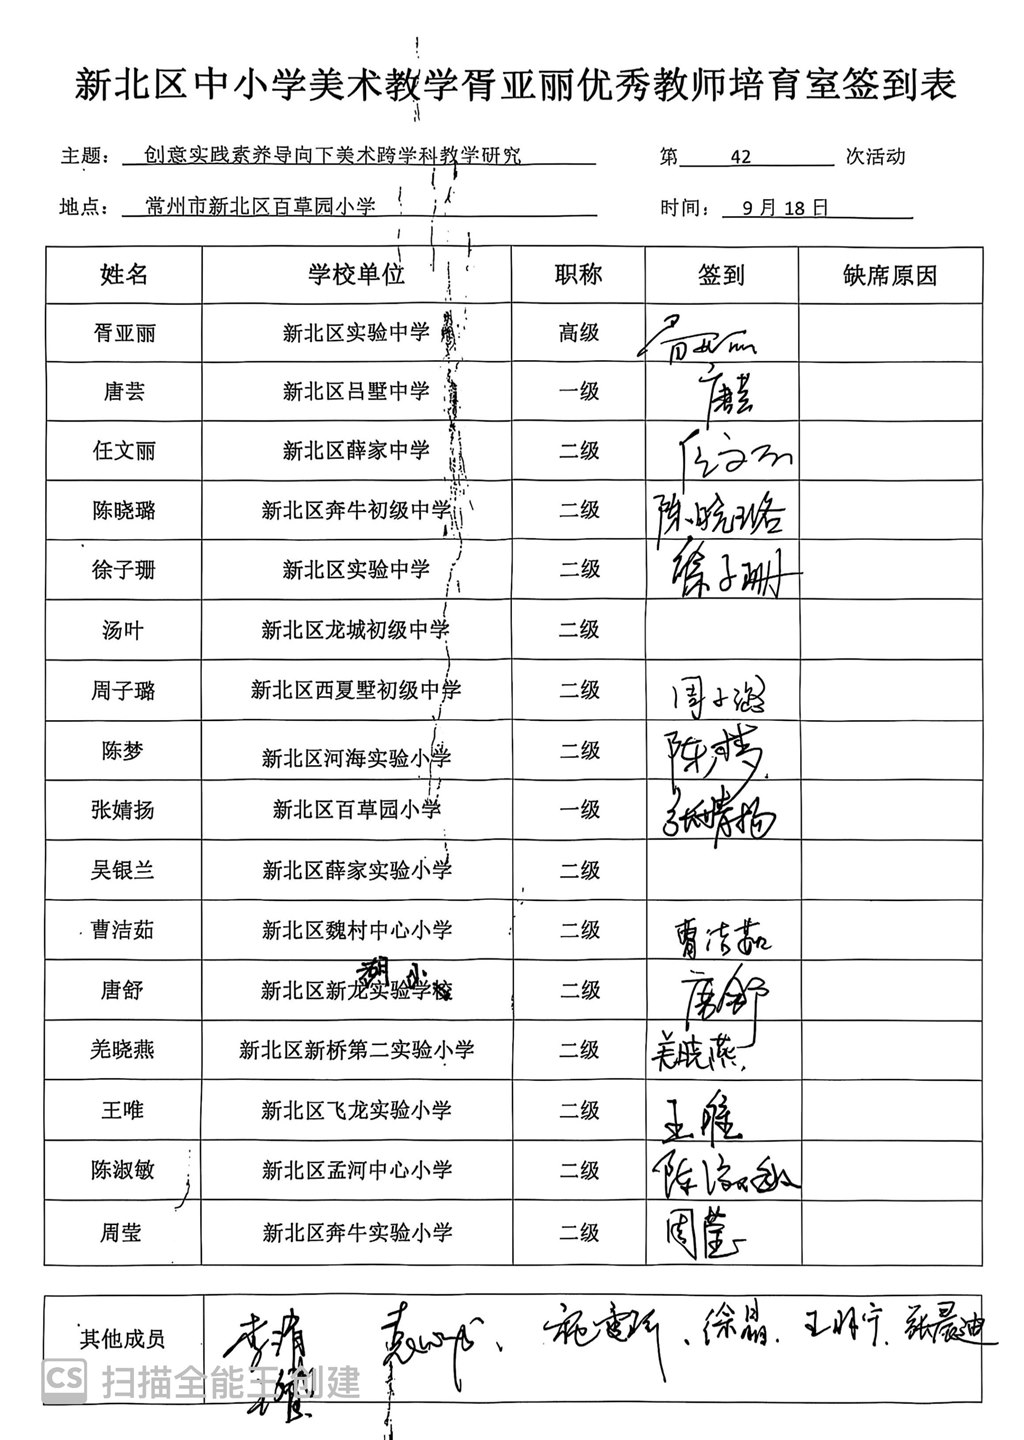 新北区中小学美术教学胥亚丽优秀教师培育室签到表
主题： 创意实践素养导向下美术跨学科教学研究 第 42 次活动
地点： 常州市新北区百草园小学 时间： 9月18日
姓名 学校单位 职称 签到 缺席原因
胥亚丽 新北区实验中学 高级 胥亚丽
唐芸 新北区吕墅中学 一级 唐芸
任文丽 新北区薛家中学 二级 任文丽
陈晓璐 新北区奔牛初级中学 二级 陈晓璐
徐子珊 新北区实验中学 二级 徐子珊
汤叶 新北区龙城初级中学 二级
周子璐 新北区西夏墅初级中学 二级 周子璐
陈梦 新北区河海实验小学 二级 陈梦
张婧扬 新北区百草园小学 一级 张婧扬
吴银兰 新北区薛家实验小学 二级
曹洁茹 新北区魏村中心小学 二级 曹洁茹
湖 小
唐舒 新北区新龙实验学校 二级 唐舒
羌晓燕 新北区新桥第二实验小学 二级 羌晓燕
王唯 新北区飞龙实验小学 二级 王唯
陈淑敏 新北区孟河中心小学 二级 陈淑敏
周莹 新北区奔牛实验小学 二级 周莹
其他成员 李涓 徐晶 王明宁 张晨迪
CS 扫描全能王 创建